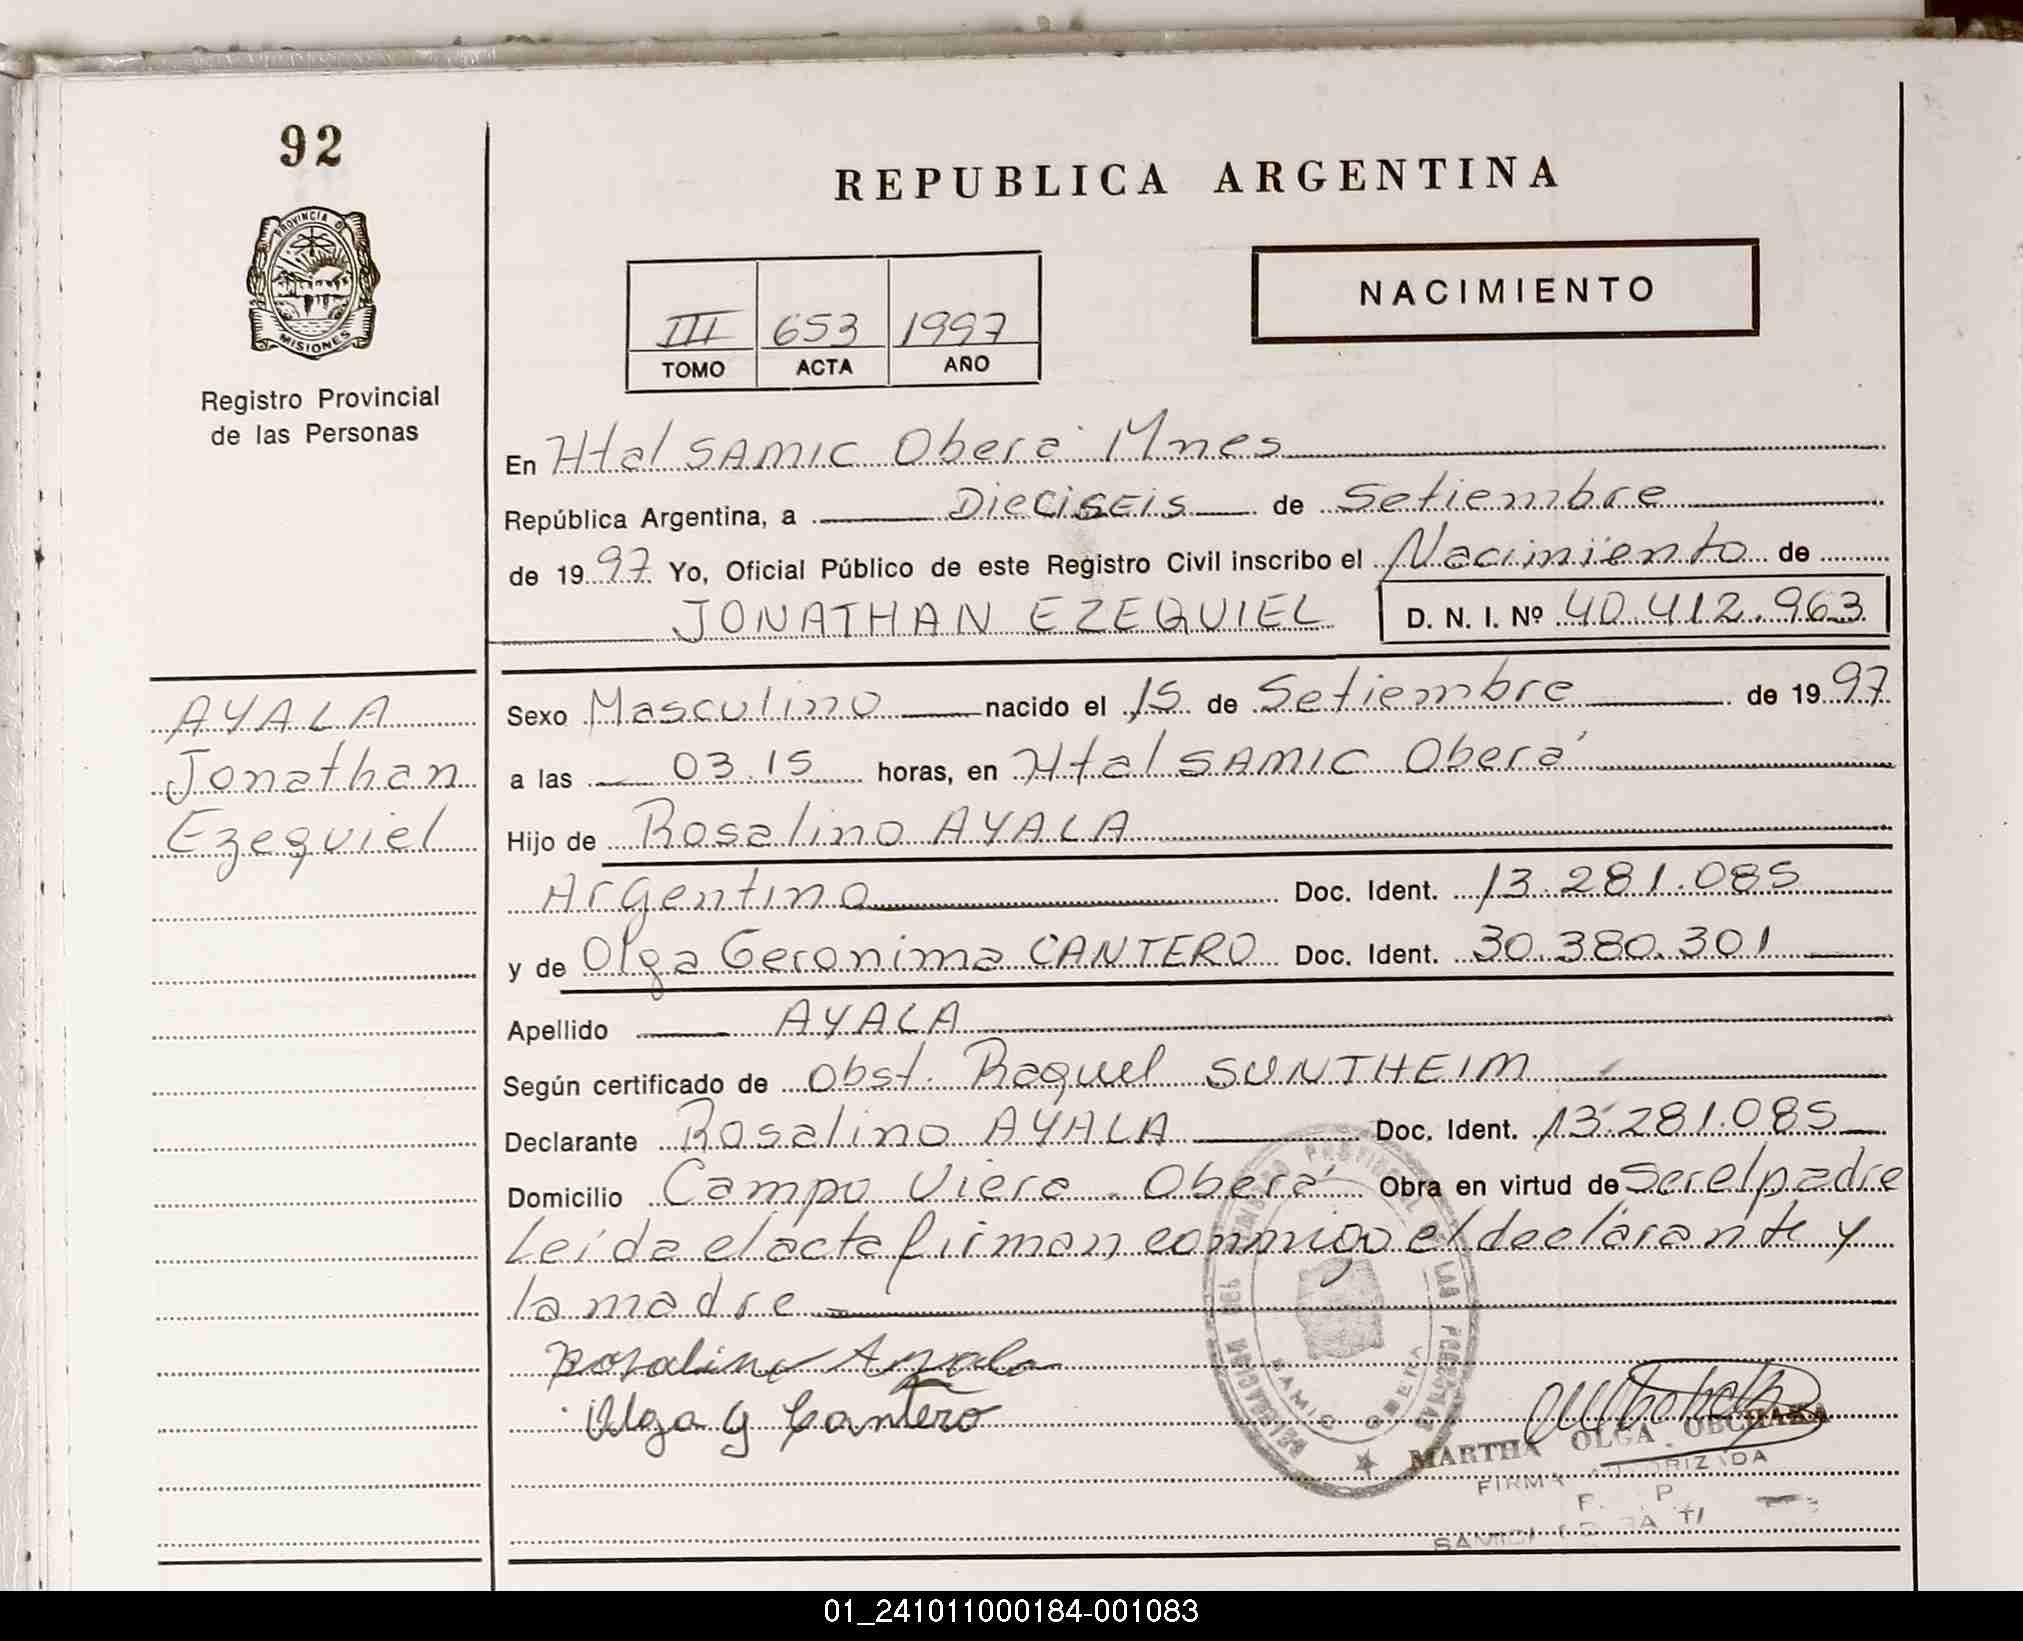 92
PROVINCIA DE
MISIONES
Registro Provincial
de las Personas
REPUBLICA ARGENTINA
NACIMIENTO
III 653 1997
TOMO ACTA AÑO
En Htal SAMIC Oberá Mnes
República Argentina, a Dieciseis de Setiembre
de 1997 Yo, Oficial Público de este Registro Civil inscribo el Nacimiento de
JONATHAN EZEQUIEL D. N. I. Nº 40.412.963
AYALA
Jonathan
Ezequiel
Sexo Masculino nacido el 15 de Setiembre de 1997
a las 03.15 horas, en Htal SAMIC Oberá
Hijo de Rosalino AYALA
Argentino Doc. Ident. 13.281.085
y de Olga Geronima CANTERO Doc. Ident. 30.380.301
Apellido AYALA
Según certificado de Obst. Raquel SUNTHEIM
Declarante Rosalino AYALA Doc. Ident. 13.281.085
Domicilio Campo Viera - Oberá Obra en virtud de Ser el padre
Leída el acta firman conmigo el declarante y
la madre
Rosalino Ayala
Olga G Cantero
DELEGACION DEL REGISTRO PROVINCIAL DE LAS PERSONAS
SAMIC OBERA
MARTHA OLGA OBCHAKA
FIRMA AUTORIZADA
01_241011000184-001083